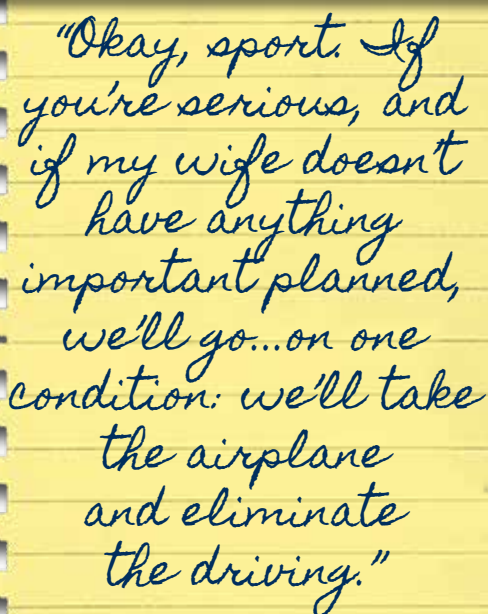 “Okay, sport. If
you’re serious, and
if my wife doesn’t
have anything
important planned,
we’ll go...on one
condition: we’ll take
the airplane
and eliminate
the driving.”